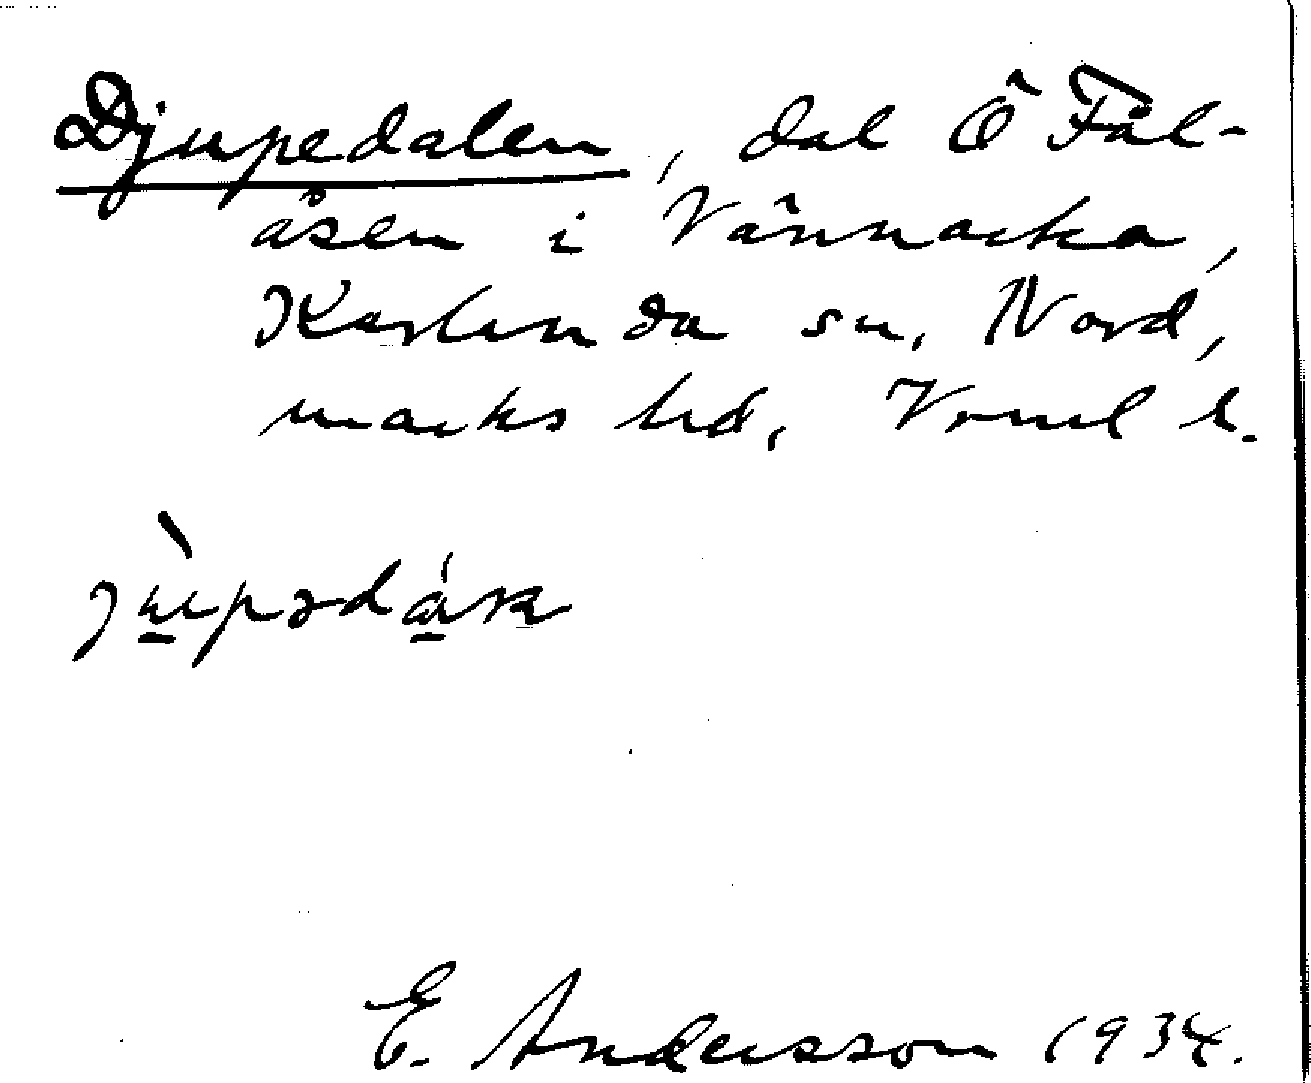 Djupedalen, dal Ö Fäl-
åsen i Vännacka,
Karlanda sn, Nord,
marks hd, Vrml l.
jùpədáɽa
E. Andersson 1934.